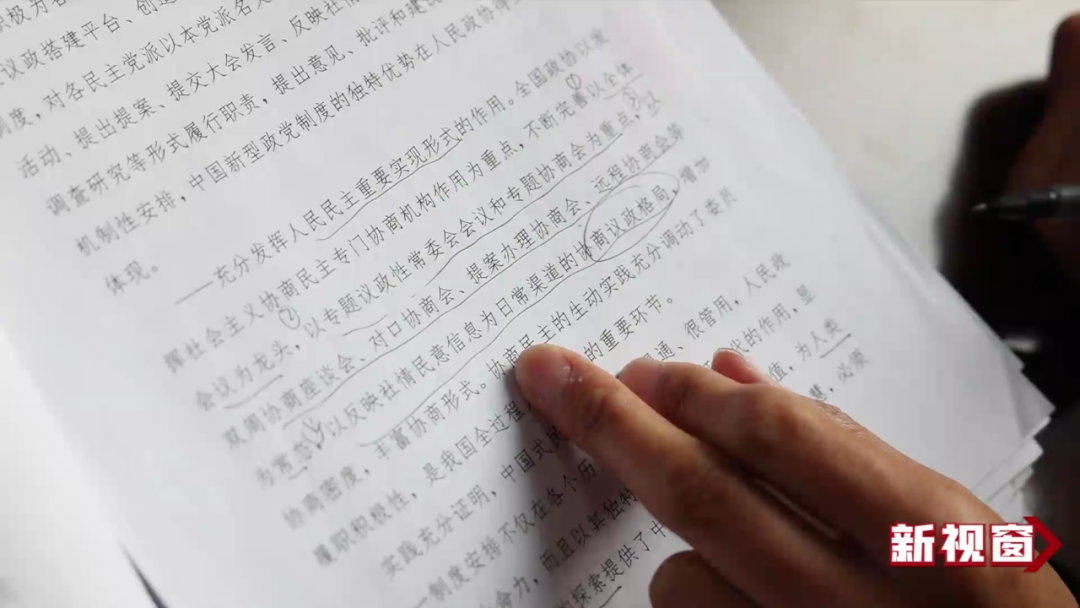 积极为各
议政搭建平台、创造
制度，对各民主党派以本党派名义
活动、提出提案、提交大会发言、反映社情
调查研究等形式履行职责，提出意见、批评和建议
机制性安排，中国新型政党制度的独特优势在人民政协得
体现。
——充分发挥人民民主重要实现形式的作用。全国政协以发
挥社会主义协商民主专门协商机构作用为重点，不断完善以全体
会议为龙头，以专题议政性常委会会议和专题协商会为重点，以
双周协商座谈会、对口协商会、提案办理协商会、远程协商会等
为常态，以反映社情民意信息为日常渠道的协商议政格局，增加
协商密度，丰富协商形式。协商民主的生动实践充分调动了委员
履职积极性，是我国全过程人 的重要环节。
实践充分证明，中国式民 通、很管用，人民政
一制度安排不仅在各个历 代的作用，显
命力，而且以其独特 值，为人类
的探索提供了中 慧，必须
新视窗